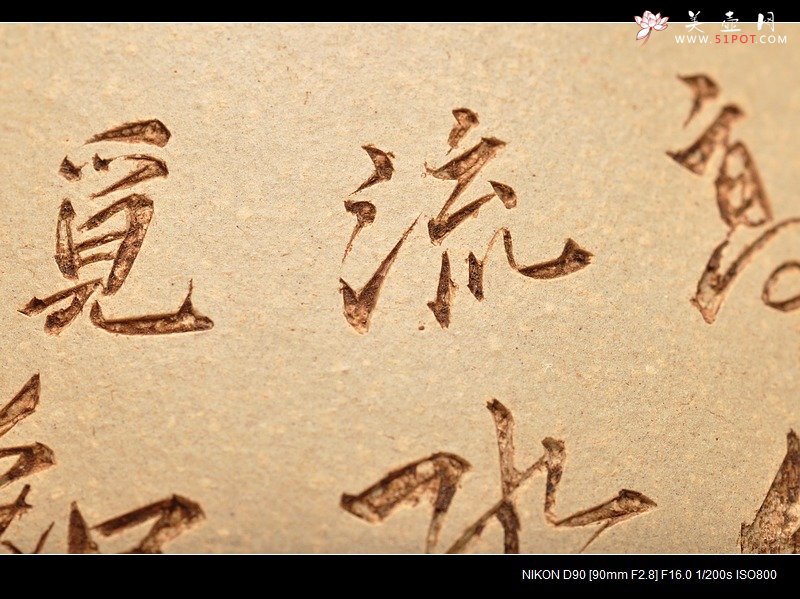 美壶网
WWW.51POT.COM
高
流水
覓知
NIKON D90 [90mm F2.8] F16.0 1/200s ISO800